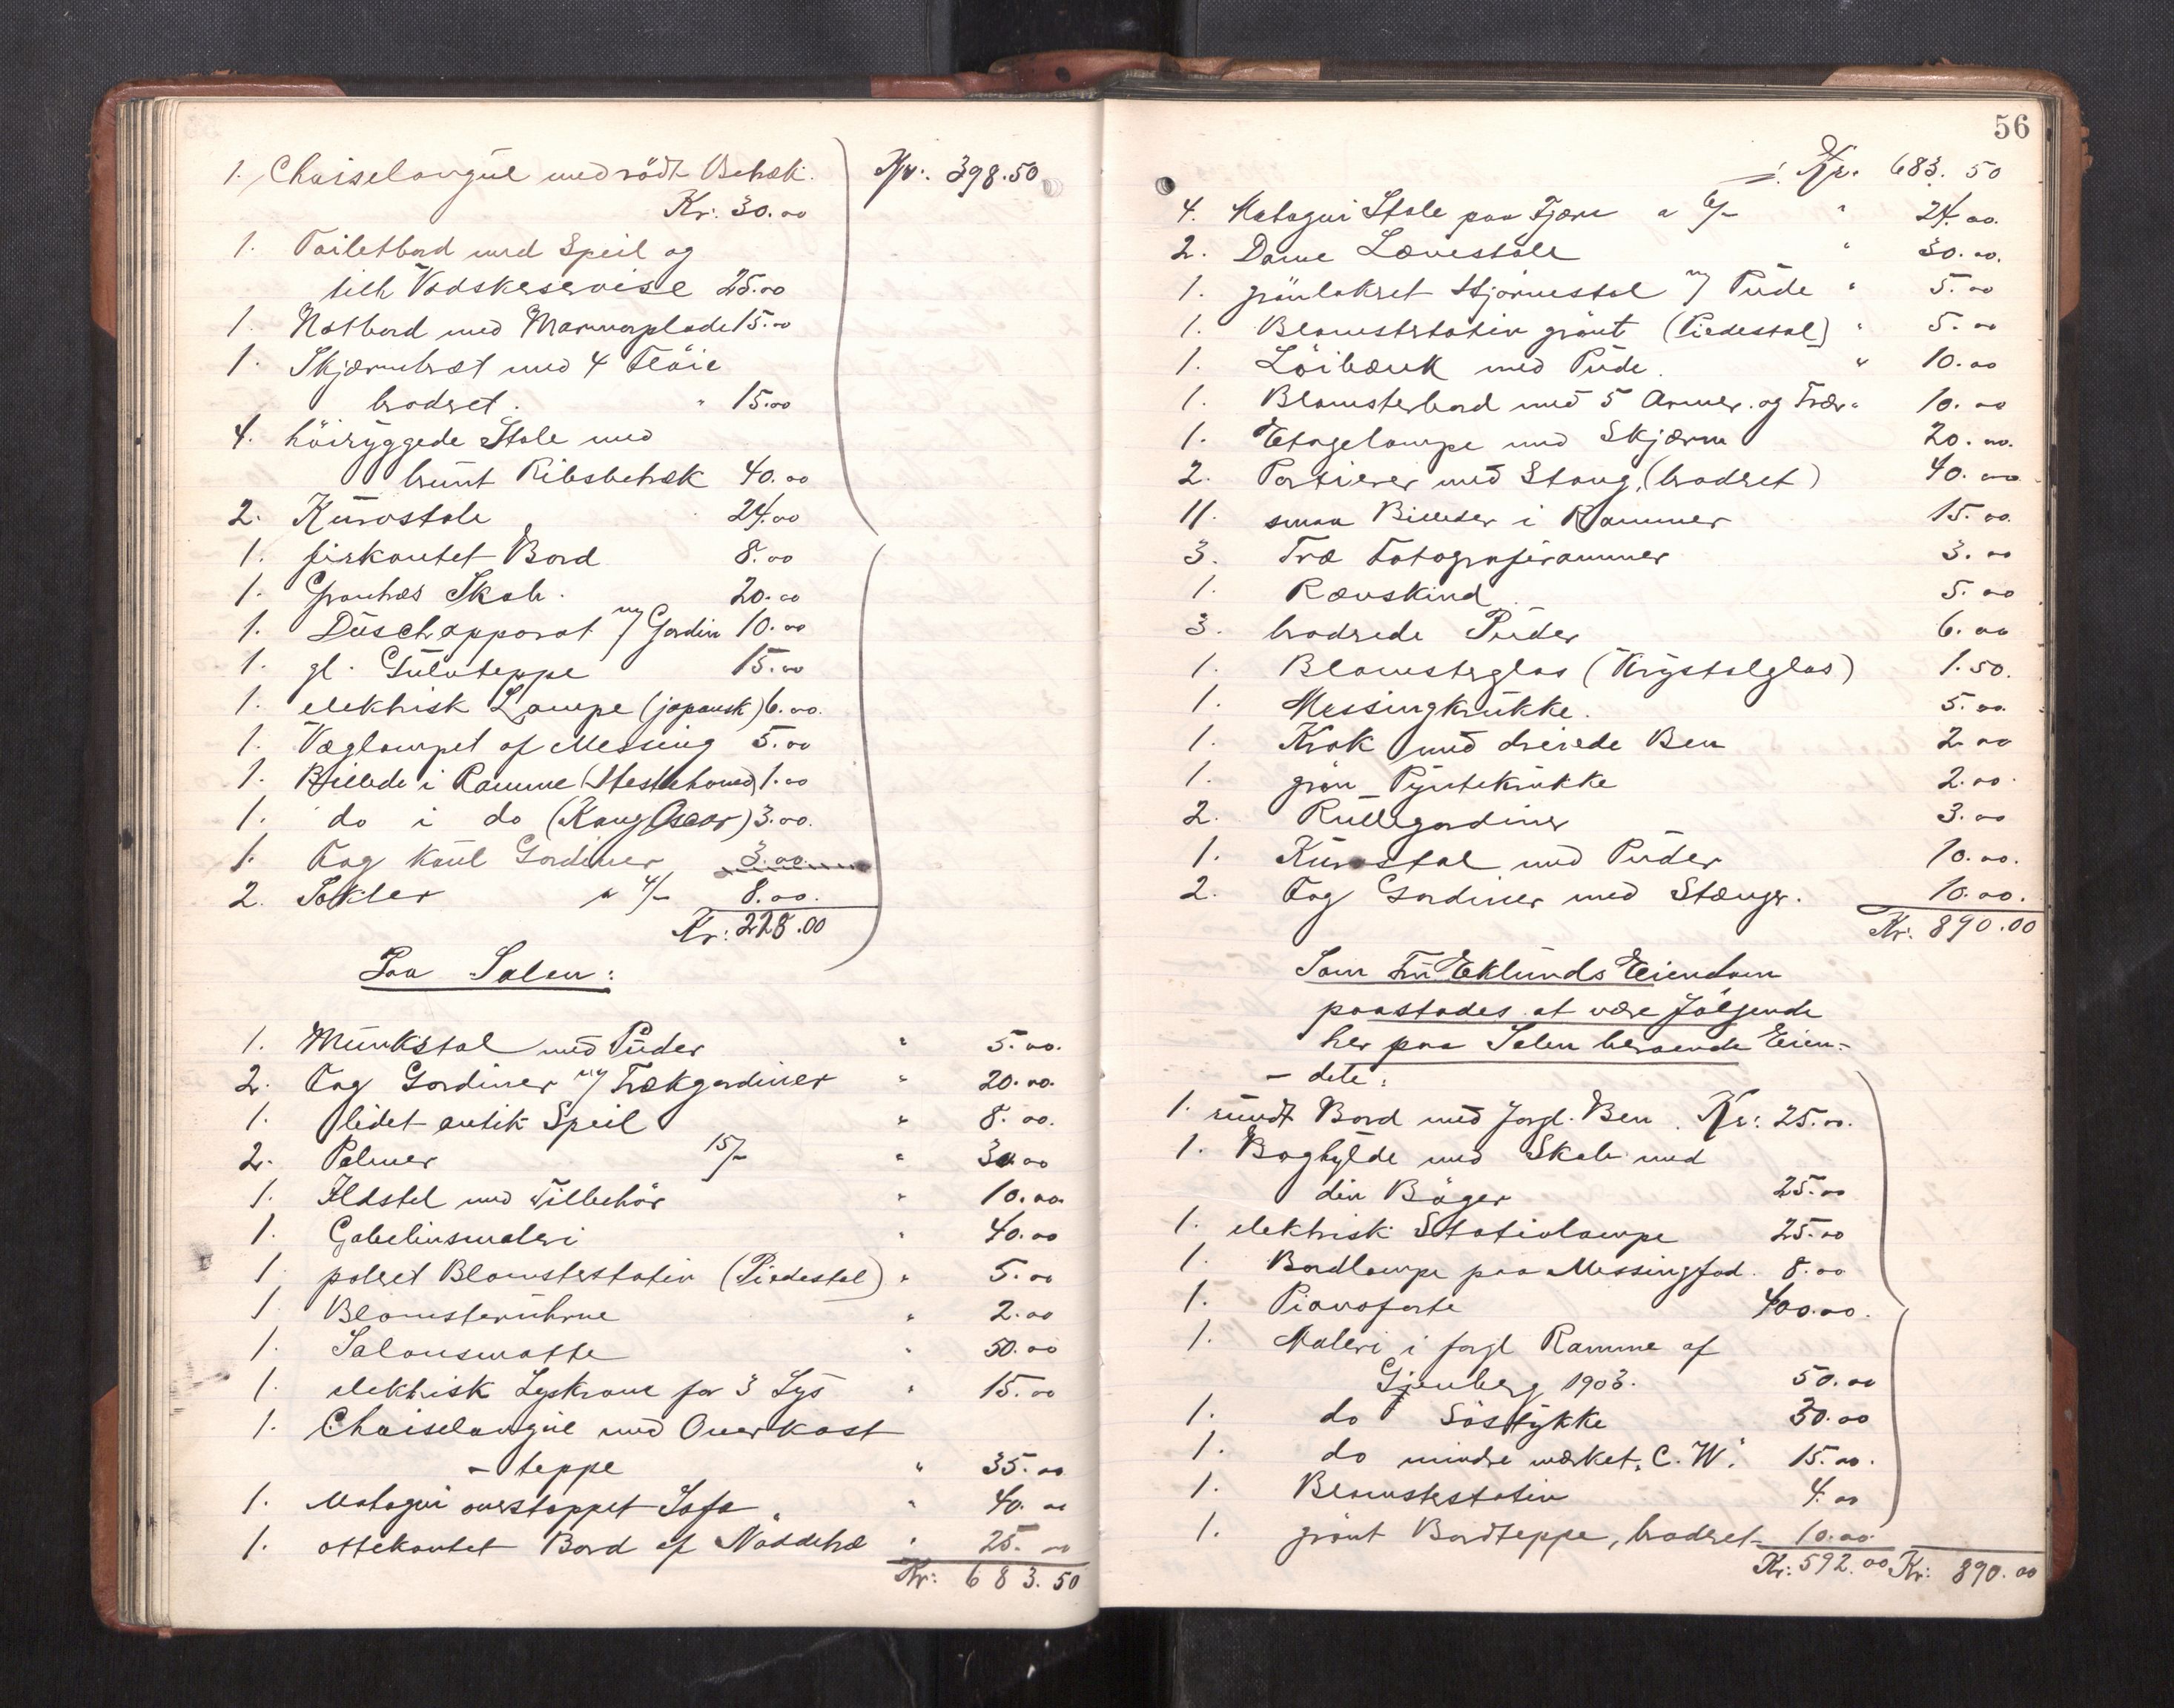 1. Chaiselongue med rödt Betræk.
Kr: 30.00
Kr: 398.50
1. Toiletbord med Speil og
tilh Vadskeservise 25.00
1. Natbord med Marmorplade 15.00
1. Skjærmbræt med 4 Flöie
broderet. " 15.00
4. höiryggede Stole med
brunt Ribsbetræk 40.00
2. Kurvstole 24.00
1. firkantet Bord 8.00
1. Grantræs Skab. 20.00
1. Duschapparat m/ Gardin 10.00
1. gl. Gulvteppe 15.00
1. elektrisk Lampe (japansk) 6.00.
1. Væglampet af Messing 5.00
1. Billede i Ramme (Hestehoved) 1.00
1. do i do (Kong Oscar) 3.00.
1. Fag Gardiner 3.00
2. Sokler a 4/- 8.00.
Kr: 228.00
Paa Salen:
1. Munkstol med Puder " 5.00.
2. Fag Gardiner m/ Trækgardiner " 20.00.
1. lidet antik Speil " 8.00.
2. Palmer 15/- " 30.00
1. Ildstel med Tilbehör " 10.00.
1. Gobelinsmaleri " 40.00
1. poleret Blomsterstativ (Piedestal) " 5.00
1 Blomsterurne " 2.00
1. Salonsmatte " 50.00
1. elektrisk Lyskrone for 3 Lys " 15.00
1. Chaiselongue med Overkast
- teppe " 35.00
1. Mahogni overstoppet Sofa " 40.00
1. ottekantet Bord af Nöddetræ " 25.00
Kr: 683.50
56
Kr. 683.50
4. Mahogni Stole paa Fjære a 6/- " 24.00.
2. Dame Lænestole " 30.00.
1. grönlakret Hjörnestol m/ Pude " 5.00
1. Blomsterstativ grönt (Piedestal) " 5.00
1. Löibænk med Pude. " 10.00
1. Blomsterbord med 5 Armer og Træ " 10.00
1. Etagelampe med Skjærm 20.00.
2. Portierer med Stang, (broderet) 40.00
11. smaa Billeder i Rammer 15.00.
3. Træ Fotografirammer 3.00
1. Rævskind. 5.00
3. broderede Puder 6.00
1. Blomsterglas (Krystalglas) 1.50.
1. Messingkrukke. 5.00.
1. Krak med dreiede Ben 2.00
1. grön Pyntekrukke 2.00.
2. Rullegardiner 3.00
1. Kurvstol med Puder 10.00.
2. Fag Gardiner med Stænger. 10.00.
Kr: 890.00
Som Fru Eklunds Eiendom
paastades at være fölgende
her paa Salen beroende Eien-
- dele:
1. rundt Bord med forgl. Ben. Kr: 25.00.
1. Boghylde med Skab med
div Böger 25.00
1. elektrisk Stativlampe 25.00
1. Bordlampe paa Messingfod. 8.00
1. Pianoforte 400.00.
1. Maleri i forgl Ramme af
Gjenberg 1903. 50.00
1. do Söstykke 30.00
1. do mindre mærket "C. W." 15.00.
1. Blomsterstativ 4.00
1. grönt Bordteppe, broderet 10.00
Kr: 592.00 Kr: 890.00